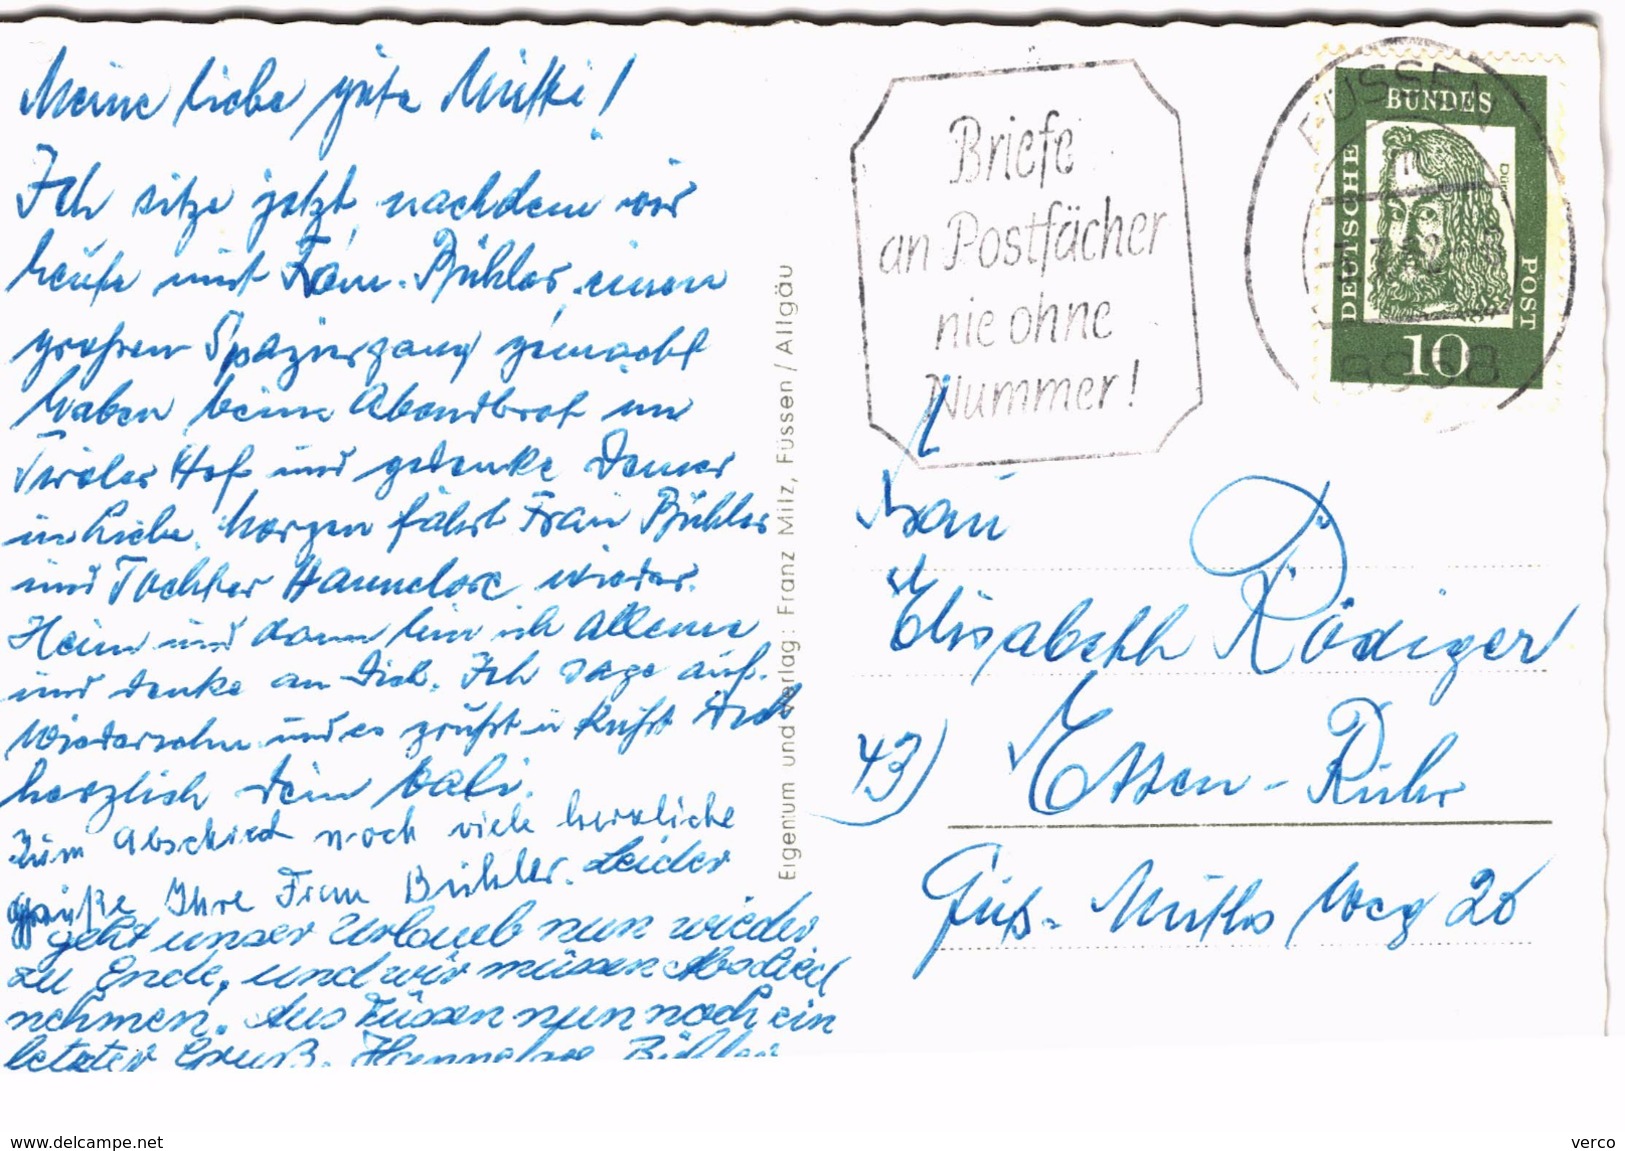 Meine liebe gute Mutti!
Ich sitze jetzt, nachdem wir
heute mit Frau Bühler einen
großen Spaziergang gemacht
haben beim Abendbrot im
Tiroler Hof und gedenke Deiner
in Liebe. Morgen fährt Frau Bühler
und Tochter Hannelore wieder
Heim und dann bin ich alleine
und denke an Dich. Ich sage auf
Wiedersehn und es grüßt u küßt Dich
herzlich Dein
Zum Abschied noch viele herzliche
Grüße Ihre Frau Bühler. Leider
geht unser Urlaub nun wieder
zu Ende, und wir müssen Abschied
nehmen. Aus Füssen nun noch ein
letzter Gruß. Hannelore Bühler
Eigentum und Verlag: Franz Milz, Füssen / Allgäu
Briefe
an Postfächer
nie ohne
Nummer!
FÜSSEN
DEUTSCHE BUNDES POST
Dürer
10
8958
Frau
Elisabeth Rödiger
43) Essen-Ruhr
Guts-Muths Weg 26
www.delcampe.net
verco